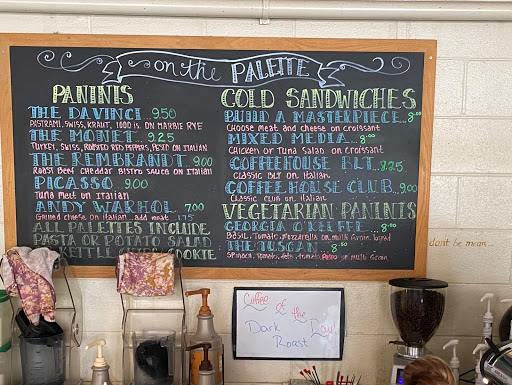 on the PALETTE
PANINIS
THE DAVINCI...9.50
PASTRAMI, SWISS, KRAUT, 1000 IS. ON MARBLE RYE
THE MONET...9.25
TURKEY, SWISS, ROASTED RED PEPPERS, PESTO ON ITALIAN
THE REMBRANDT...9.00
ROAST BEEF CHEDDAR BISTRO SAUCE ON ITALIAN
PICASSO...9.00
TUNA MELT ON ITALIAN
ANDY WARHOL...7.00
Grilled cheese on Italian...add meat 1.75
ALL PALETTES INCLUDE
PASTA OR POTATO SALAD
KETTLE COOKIE
COLD SANDWICHES
BUILD A MASTERPIECE...8.00
Choose meat and cheese on croissant
MIXED MEDIA...8.00
Chicken or Tuna Salad on croissant
COFFEEHOUSE BLT...8.25
Classic BLT on Italian
COFFEEHOUSE CLUB...9.00
Classic Club on Italian
VEGETARIAN PANINIS
GEORGIA O'KEEFFE...8.50
Basil, Tomato, Mozzarella on Multi Grain bread
THE TUSCAN...8.50
Spinach, Tomato, feta, Pesto on multi Grain
don't be mean...
Coffee of the Day
Dark
Roast